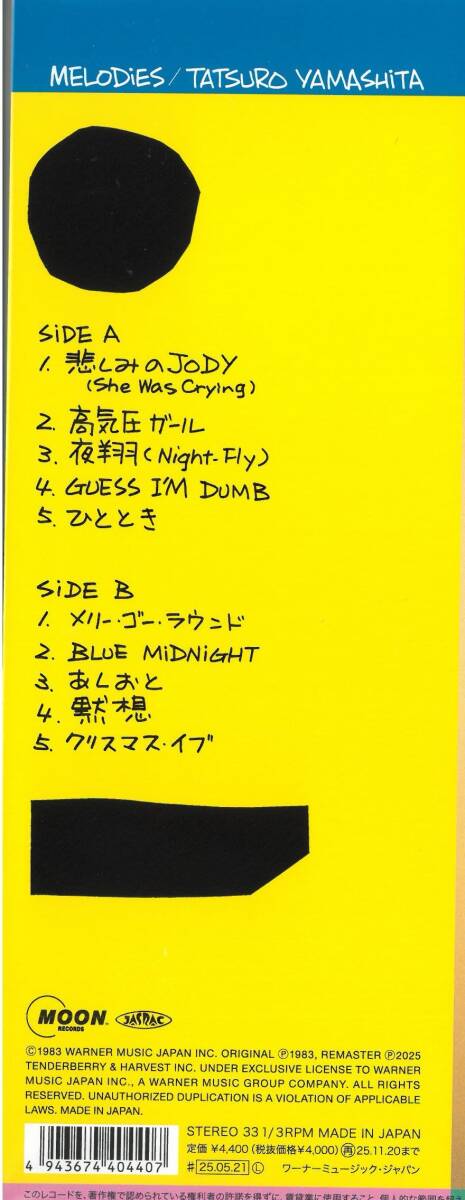 MELODiES / TATSURO YAMASHiTA
SiDE A
1. 悲しみのJODY
(She Was Crying)
2. 高気圧ガール
3. 夜翔(Night-Fly)
4. GUESS I'M DUMB
5. ひととき
SiDE B
1. メリー・ゴー・ラウンド
2. BLUE MiDNiGHT
3. あしおと
4. 黙想
5. クリスマス・イブ
MOON
RECORDS
JASRAC
©1983 WARNER MUSIC JAPAN INC. ORIGINAL ℗1983, REMASTER ℗2025
TENDERBERRY & HARVEST INC. UNDER EXCLUSIVE LICENSE TO WARNER
MUSIC JAPAN INC., A WARNER MUSIC GROUP COMPANY. ALL RIGHTS
RESERVED. UNAUTHORIZED DUPLICATION IS A VIOLATION OF APPLICABLE
LAWS. MADE IN JAPAN.
STEREO 33 1/3RPM MADE IN JAPAN
定価 ¥4,400 (税抜価格¥4,000) 再25.11.20まで
♯ 25.05.21 Ⓛ ワーナーミュージック・ジャパン
4 943674 404407
このレコードを、著作権で認められている権利者の許諾を得ずに、賃貸業に使用すること、個人的な範囲を